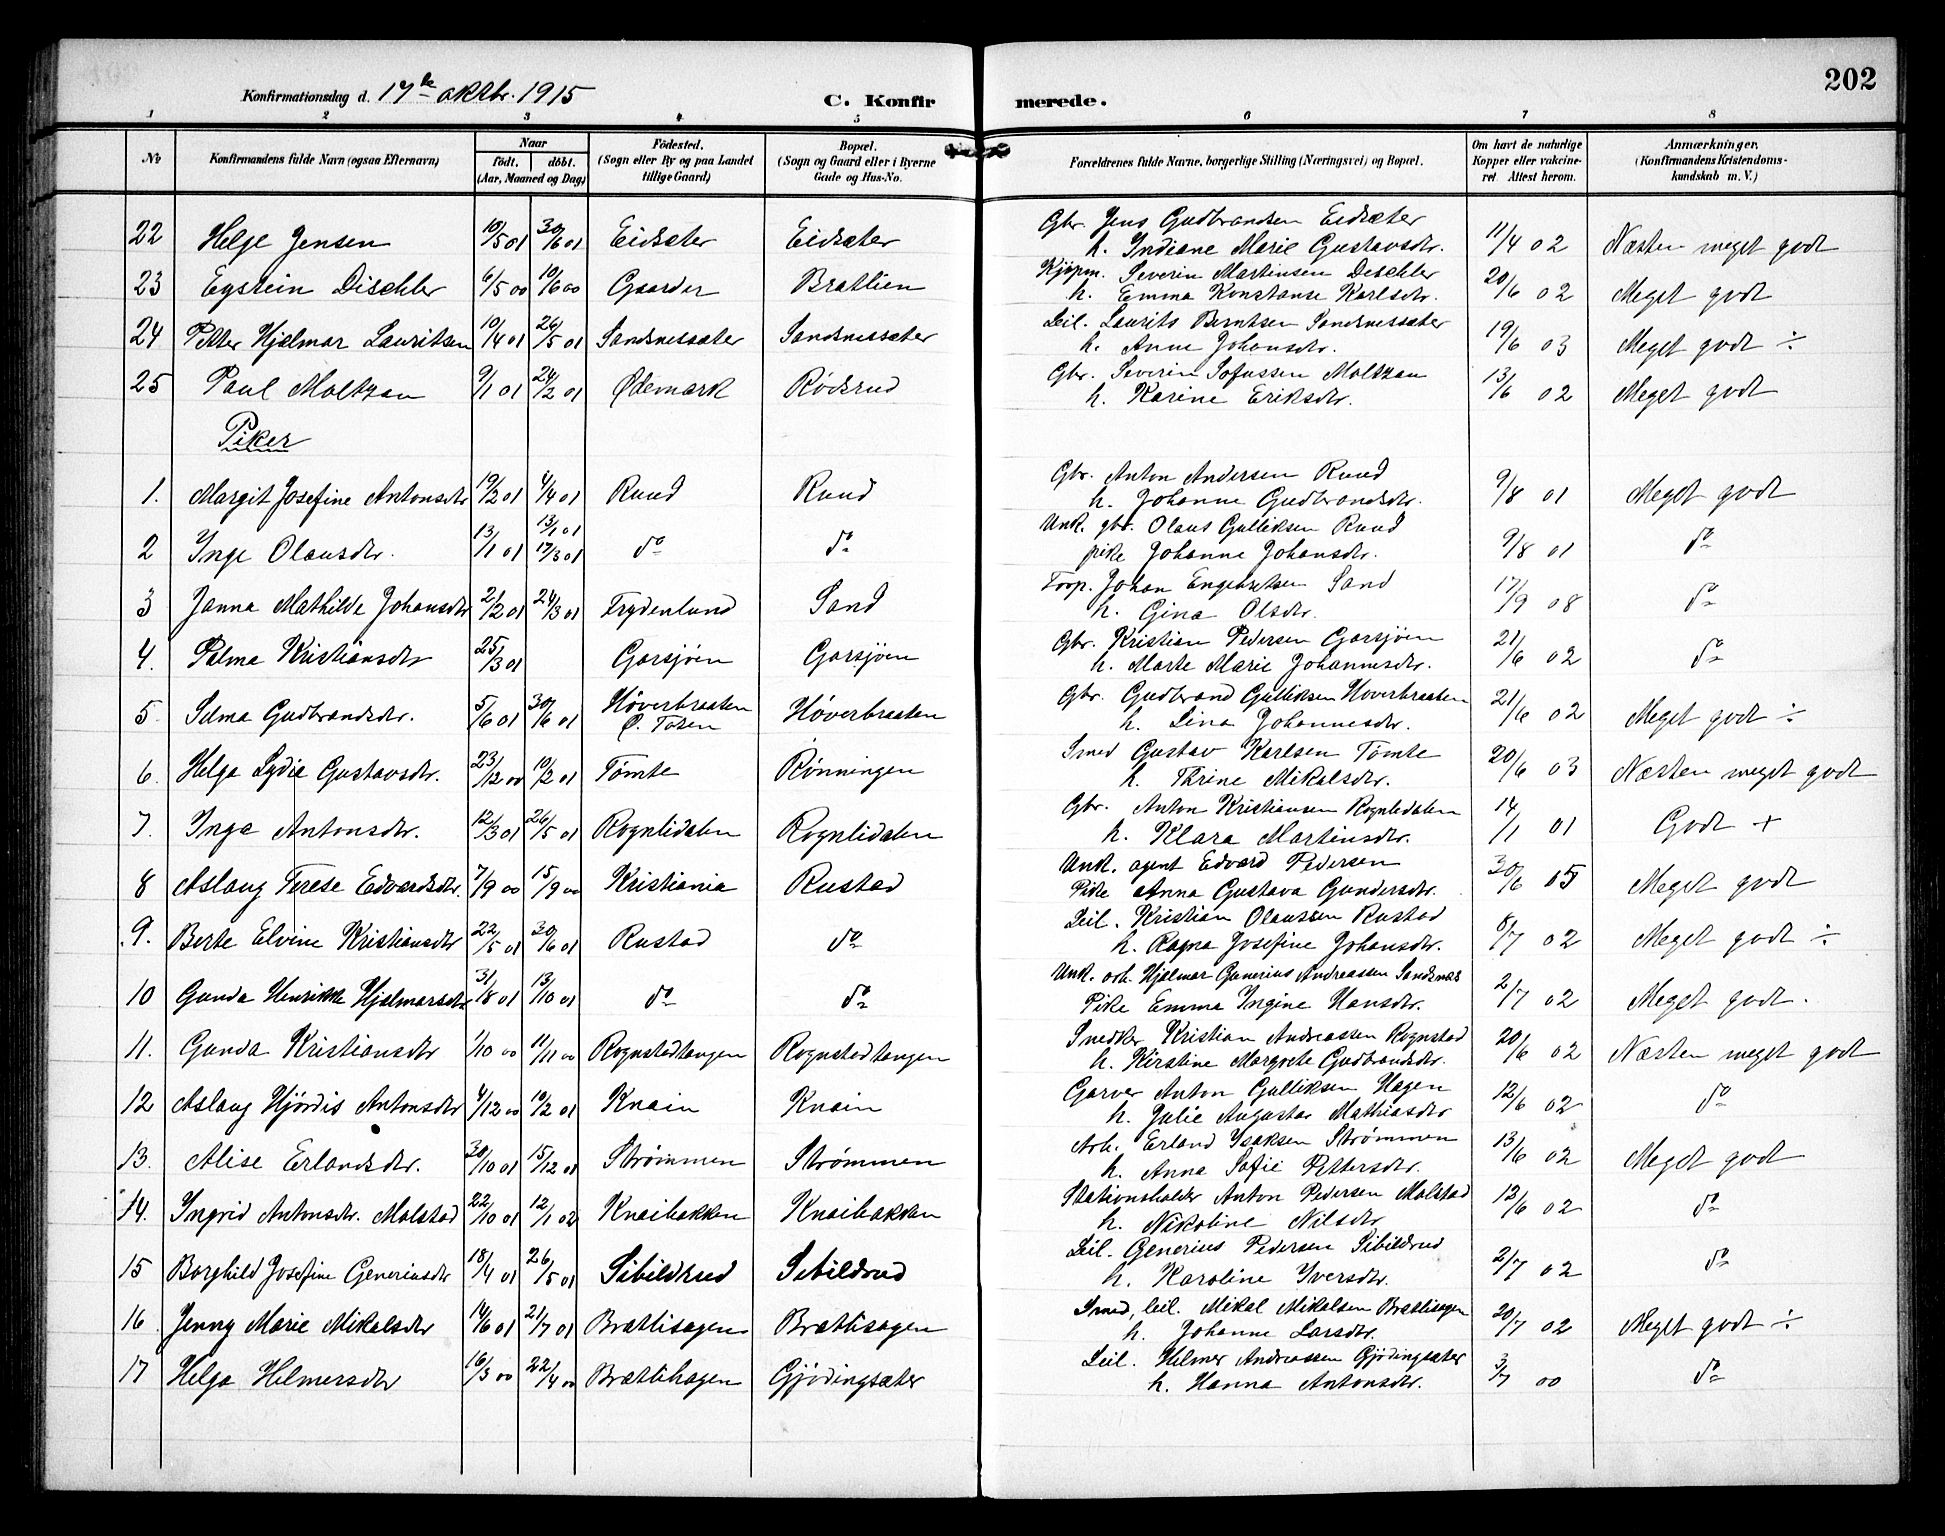 202
Konfirmationsdag d. 17de oktbr. 1915
C. Konfirmerede.
1 2 3 4 5 6 7 8
No
Konfirmandens fulde Navn (ogsaa Efternavn)
Naar
født. døbt.
(Aar, Maaned og Dag)
Fødested.
(Sogn eller By og paa Landet
tillige Gaard)
Bopæl.
(Sogn og Gaard eller i Byerne
Gade og Hus-No.
Forældrenes fulde Navne, borgerlige Stilling (Næringsvei) og Bopæl.
Om havt de naturlige
Kopper eller vakcine-
ret Attest herom.
Anmærkninger.
(Konfirmandens Kristendoms-
kundskab m. V.)
22 Helge Jensen 10/5 01 30/6 01 Eidsæter Eidsæter Gbr. Jens Gudbrandsen Eidsæter 11/4 02 Næsten meget godt
h. Indiane Marie Gustavsdtr.
23 Eystein Dischler 6/5 00 10/6 00 Gaarder Brætlien Kjøpm. Severin Martinsen Dischler 20/6 02 Meget godt
h. Emma Konstanse Karlsdtr.
24 Petter Hjalmar Lauritsen 10/4 01 26/5 01 Sandsnessæter Sandsnessæter Leil. Laurits Berntsen Sandsnessæter 19/6 03 Meget godt ÷
h. Anne Johansdtr.
25 Paul Moltzau 9/1 01 24/2 01 Ødemark Rødsrud Gbr. Severin Sofussen Moltzau 13/6 02 Meget godt
h. Karine Eriksdtr.
Piker
1. Margit Josefine Antonsdtr 19/2 01 4/4 01 Ruud Ruud Gbr. Anton Andersen Ruud 9/8 01 Meget godt
h. Johanne Gudbrandsdtr.
2 Inge Olausdtr. 13/1 01 13/1 01 17/3 01 do do Unk. gbr. Olaus Gulliksen Ruud 9/8 01 do
pike Johanne Johansdtr.
3 Janna Mathilde Johansdtr 2/2 01 24/3 01 Frydenlund Sand Torp. Johan Engebretsen Sand 17/9 08 do
h. Gina Olsdtr.
4. Palma Kristiansdtr 25/3 01 Garsjøen Garsjøen Gbr. Kristian Pedersen Garsjøen 21/6 02 do
h. Marte Marie Johannesdtr.
5. Selma Gudbrandsdtr. 5/6 01 30/6 01 Høverbraaten Høverbraaten Gbr. Gudbrand Gulliksen Høverbraaten 21/6 02 Meget godt ÷
Ø. Toten h. Lina Johannesdtr.
6. Helga Lydia Gustavsdtr. 23/12 00 10/2 01 Tømte Rønningen Smed Gustav Karlsen Tømte 20/6 03 Næsten meget godt
h. Thrine Mikalsdtr.
7. Inga Antonsdtr. 12/3 01 26/5 01 Rognlidalen Rognlidalen Gbr. Anton Kristiansen Rognlidalen 14/1 01 Godt +
h. Klara Martinsdtr.
8 Aslaug Terese Edvardsdtr. 7/9 00 15/9 00 Kristiania Rustad Unk. agent Edvard Pedersen 30/6 05 Meget godt
Pike Anna Gustava Gundersdtr.
9. Berte Elvine Kristiansdtr 22/5 01 30/6 01 Rustad do Leil. Kristian Olaussen Rustad 8/7 02 Meget godt ÷
h. Ragna Josefine Johansdtr.
10 Gunda Henrikke Hjalmarsdtr 31/8 01 13/10 01 do do Unk. arb. Hjalmar Gunerius Andreassen Sandsnæs 2/7 02 Meget godt.
Pike Emma Ingine Hansdtr.
11. Gunda Kristiansdtr 1/10 00 11/11 00 Rognstadtangen Rognstadtangen Snedker Kristian Andreassen Rognstad 20/6 02 Næsten meget godt
h. Kirstine Margrete Gudbrandsdtr.
12 Aslaug Hjørdis Antonsdtr 4/12 00 10/2 01 Knain Knain Garver Anton Gulliksen Hagen 12/6 02 do
h. Julie Augusta Mathiasdtr
13. Alise Erlandsdtr. 20/10 01 15/12 01 Strømmen Strømmen Arb. Erland Isaksen Strømmen 13/6 02 Meget godt
h. Anna Sofie Pettersdtr.
14. Ingrid Antonsdtr. Molstad 22/10 01 12/1 02 Knaibakken Knaibakken Stationsholder Anton Pedersen Molstad 12/6 02 do
h. Nikoline Nilsdtr
15 Borghild Josefine Generiusdtr 18/4 01 26/5 01 Sibildrud Sibildrud Leil. Generius Pedersen Sibildrud 2/7 02 do
h. Karoline Iversdtr.
16. Jenny Marie Mikalsdtr 14/6 01 21/7 01 Brættisagen Brættisagen Smed, leil. Mikal Mikalsen Brættisagen 20/7 02 Meget godt ÷
h. Johanne Larsdtr.
17 Helga Helmersdtr 16/3 00 22/4 00 Brættihagen Gjødingsæter Leil. Helmer Andreassen Gjødingsæter 3/7 00 do
h. Hanna Antonsdtr.